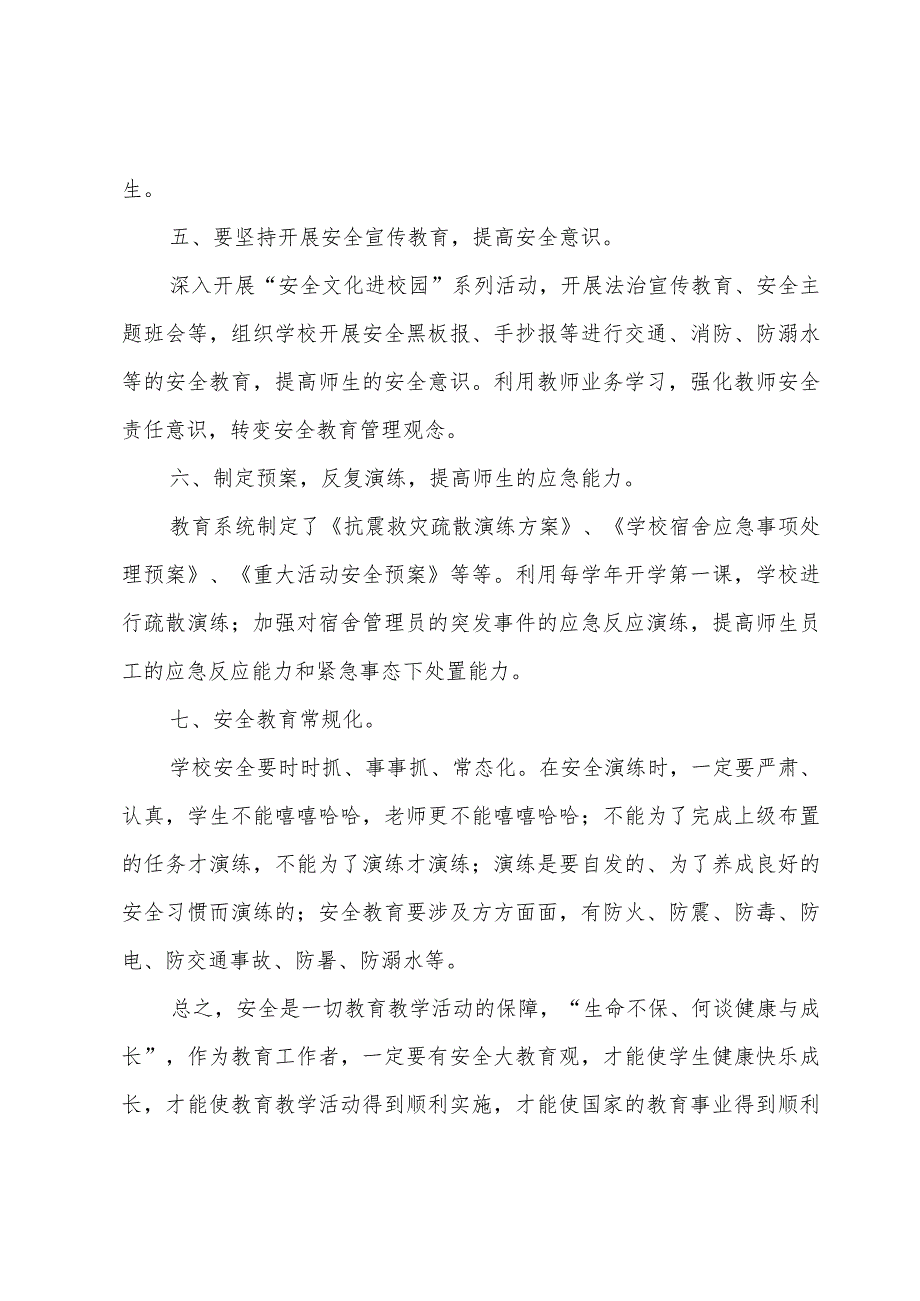 生。
五、要坚持开展安全宣传教育，提高安全意识。
深入开展“安全文化进校园”系列活动，开展法治宣传教育、安全主
题班会等，组织学校开展安全黑板报、手抄报等进行交通、消防、防溺水
等的安全教育，提高师生的安全意识。利用教师业务学习，强化教师安全
责任意识，转变安全教育管理观念。
六、制定预案，反复演练，提高师生的应急能力。
教育系统制定了《抗震救灾疏散演练方案》、《学校宿舍应急事项处
理预案》、《重大活动安全预案》等等。利用每学年开学第一课，学校进
行疏散演练；加强对宿舍管理员的突发事件的应急反应演练，提高师生员
工的应急反应能力和紧急事态下处置能力。
七、安全教育常规化。
学校安全要时时抓、事事抓、常态化。在安全演练时，一定要严肃、
认真，学生不能嘻嘻哈哈，老师更不能嘻嘻哈哈；不能为了完成上级布置
的任务才演练，不能为了演练才演练；演练是要自发的、为了养成良好的
安全习惯而演练的；安全教育要涉及方方面面，有防火、防震、防毒、防
电、防交通事故、防暑、防溺水等。
总之，安全是一切教育教学活动的保障，“生命不保、何谈健康与成
长”，作为教育工作者，一定要有安全大教育观，才能使学生健康快乐成
长，才能使教育教学活动得到顺利实施，才能使国家的教育事业得到顺利